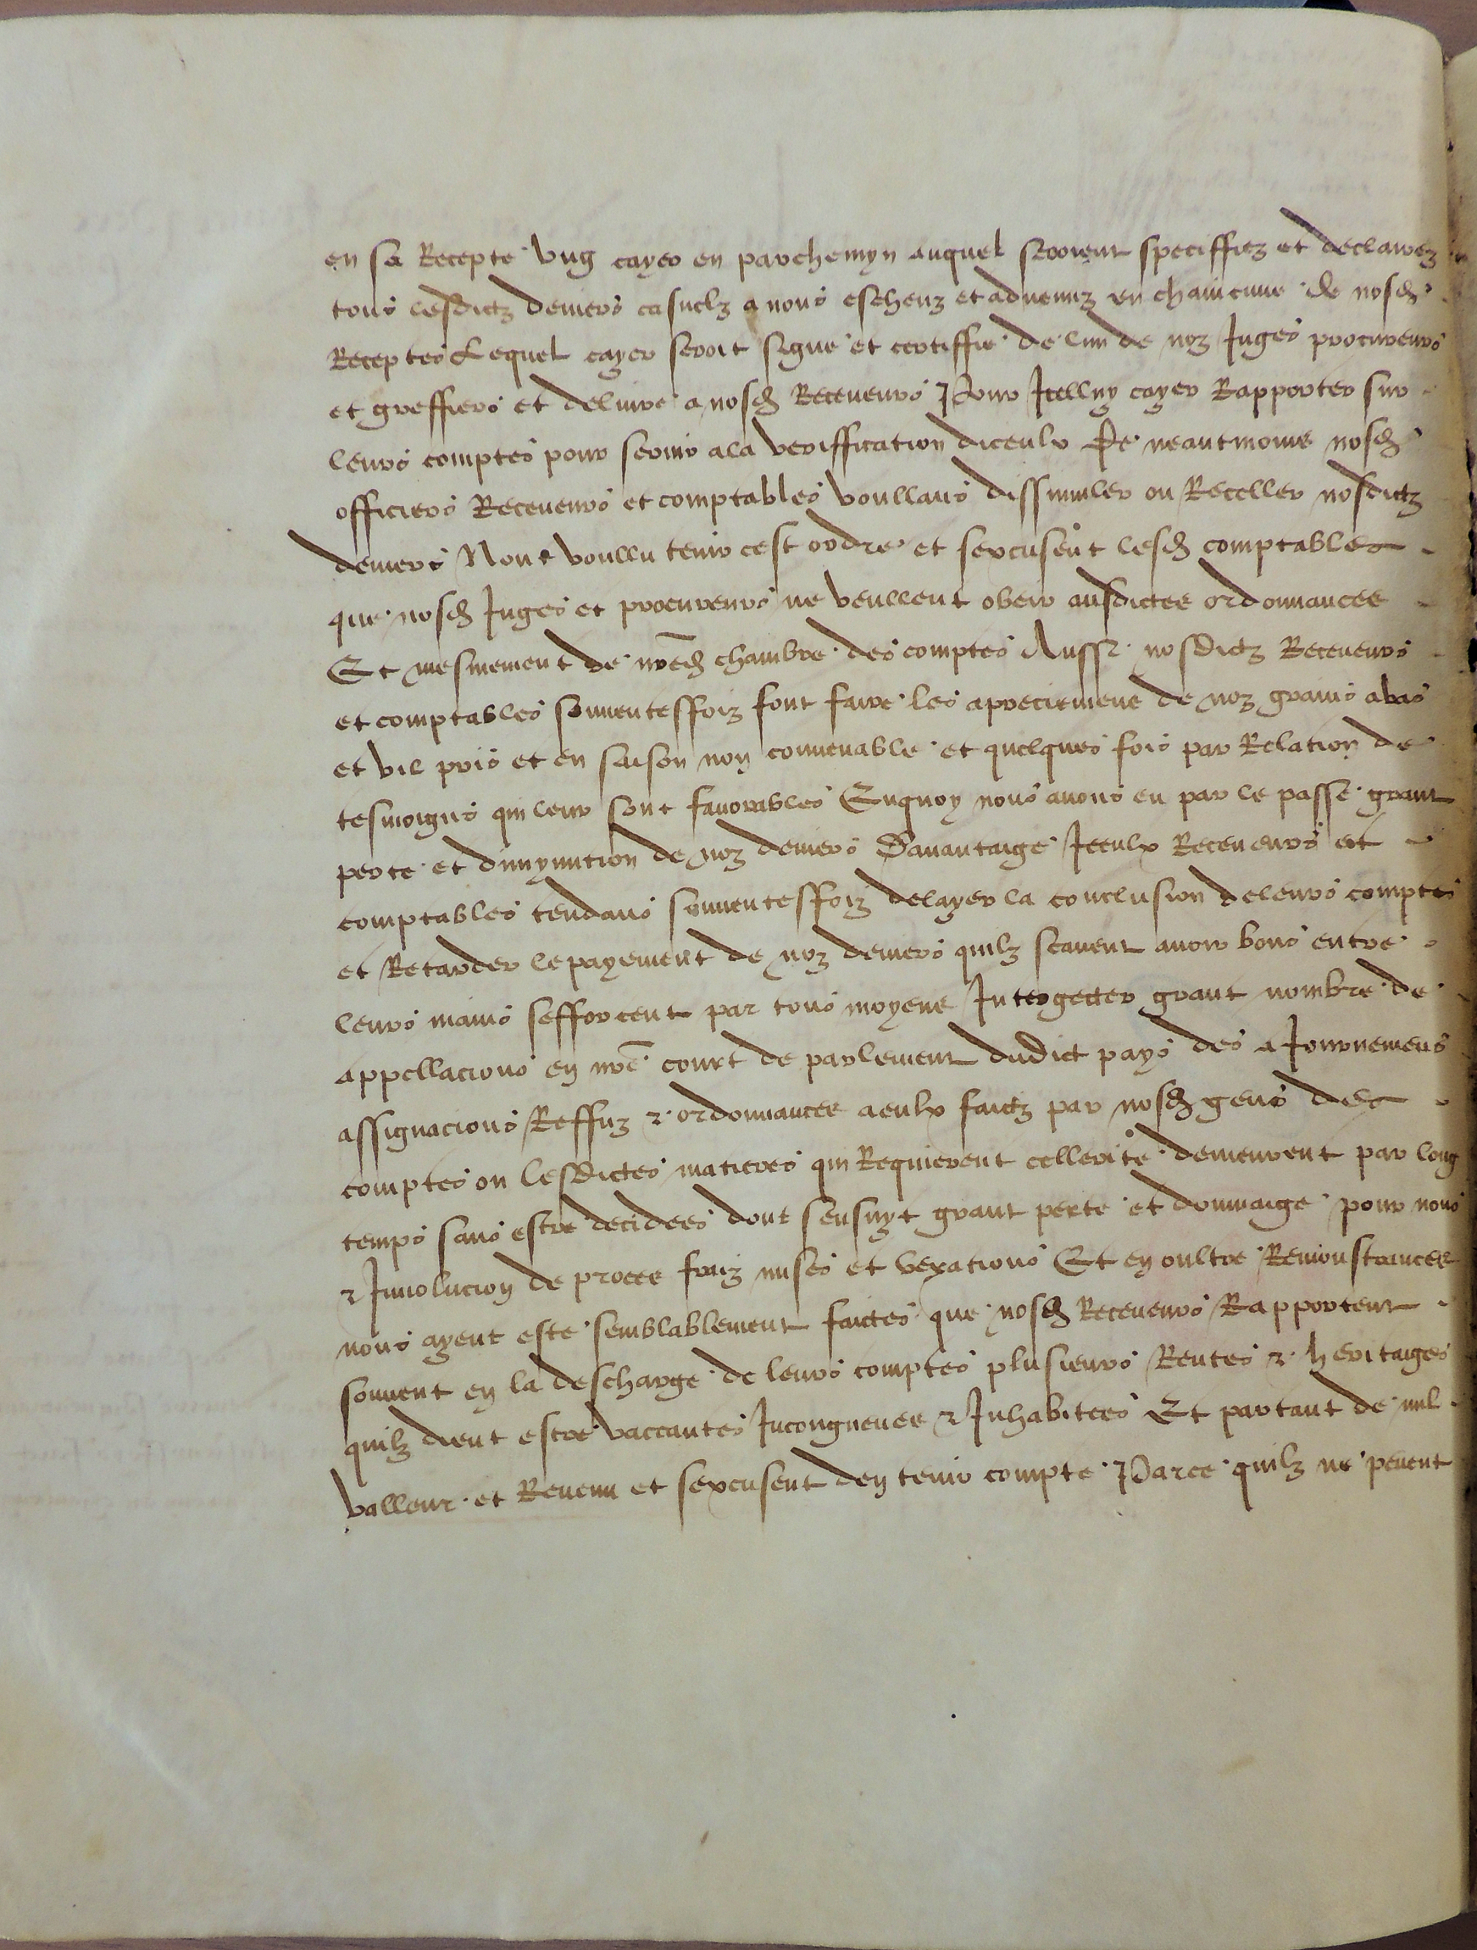 en sa Recepte ung cayer en parchemyn auquel seroient speciffiez et declairez
tous lesdictz deniers casuelz a nous escheuz et advenuz en chaincune de nosd
Receptes Lequel cayer seroit signe et certiffie de lun de noz Juges procureurs
et greffiers et delivre a nosd Receveurs Pour Icelluy cayer Rapporter sur
leurs comptes pour servir ala veriffication diceulx Ce neantmoins nosd
officiers Receveurs et comptables voullans dissimuler ou Receller nosdictz
deniers Nont voullu tenir cest ordre et sexcusent lesd comptables
que nosd Juges et procureurs ne veullent obeir ausdictes ordonnances
Et mesmement de nred chambre des comptes Aussi nosdictz Receveurs
et comptables souventesffoiz font faire les apreciemens de noz grains abas
et vil pris et en saison non convenable et quelques fois par Relation de
tesmoigns qui leur sont favorables Enquoy nous avons eu par le passe grant
perte et dimynution de noz deniers Davantaige Iceulx Receveurs et
comptables tendans souventesffoiz delayer la conclusion deleurs comptes
et Retarder lepayement de noz deniers quilz scavent avoir bons entre
leurs mains sefforcent par tous moyens Intergetter grant nombre de
appellacions en nre court de parlement dudict pays des aJournemens
assignacions Reffuz & ordonnances aeulx faictz par nosd gens des
comptes ou lesdictes matieres qui Requierent cellerite demeurent par long
temps sans estre decidees dont sensuyt grant perte et dommaige pour nous
& Involucion de proces fraiz mises et vexations Et en oultre Remonstrances
nous ayent este semblablement faictes que nosd Receveurs Rapportent
souvent en la descharge de leurs comptes plusieurs Rentes & heritaiges
quilz dient estre vaccantes Incongneues & Inhabitees Et partant de nul
valleur et Revenu et sexcusent den tenir compte Parce quilz ne pevent